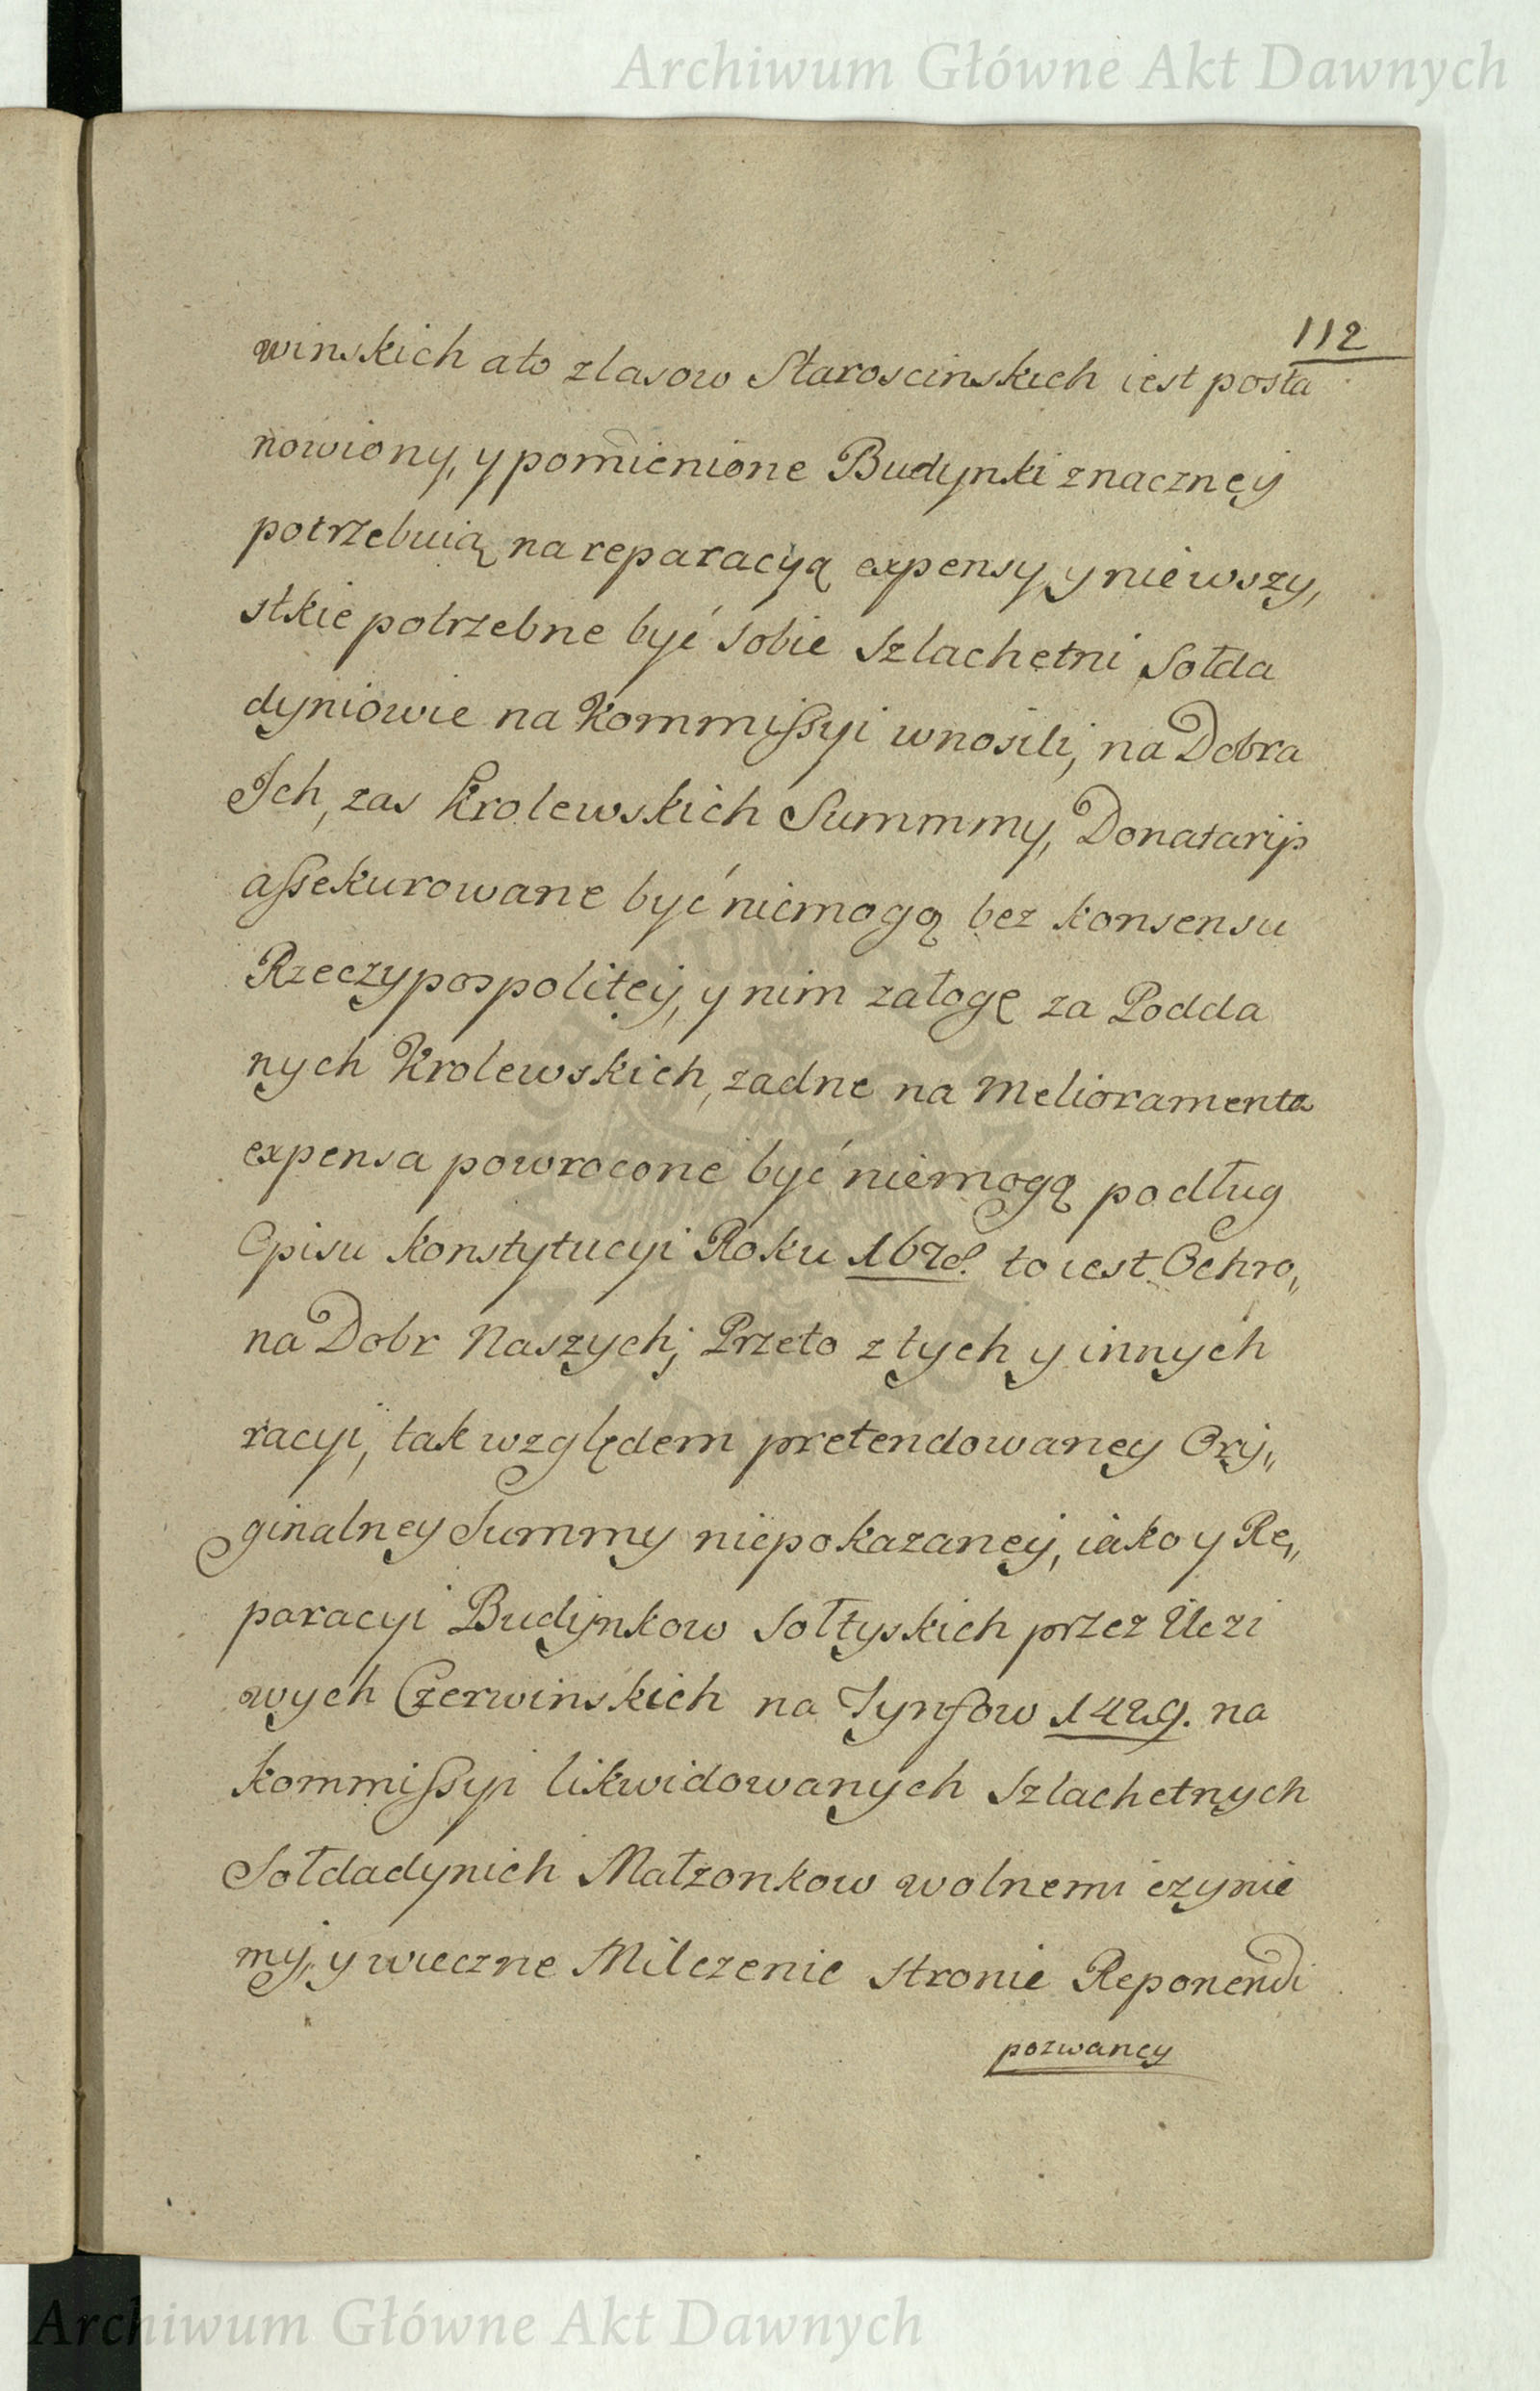 Archiwum Główne Akt Dawnych
112
winskich ato zlasow Staroscinskich iest posta
nowiony, y pomienione Budynki znaczney
potrzebuią na reparacyą expensy, y nie wszy,
stkie potrzebne być sobie Szlachetni Sołda
dyniowie na Kommissyi wnosili, na Dobra
Ich, zas Krolewskich Summmy, Donatarijs
assekurowane być niemogą bez konsensu
Rzeczypospolitey, y nim załogę za Podda
nych Krolewskich, zadne na Melioramenta
expensa powrocone być niemogą podług
Opisu konstytucyi Roku 1678. to iest Ochro,,
na Dobr Naszych; Przeto z tych y innych
racyi, tak względem pretendowaney Ory,,
ginalney Summy niepokazaney, iako y Re,,
paracyi Budynkow Sołtyskich przez Uczi
wych Czerwinskich na Tynfow 1429. na
kommissyi likwidowanych Szlachetnych
Sołdadynich Małzonkow wolnemi czynie
my, y wieczne Milczenie stronie Reponendi
pozwaney
Archiwum Główne Akt Dawnych